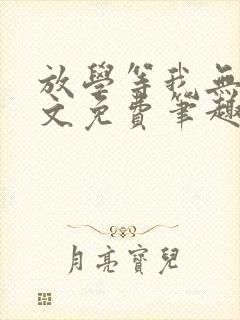 放學等我無
文免費筆趣
月亮寶兒